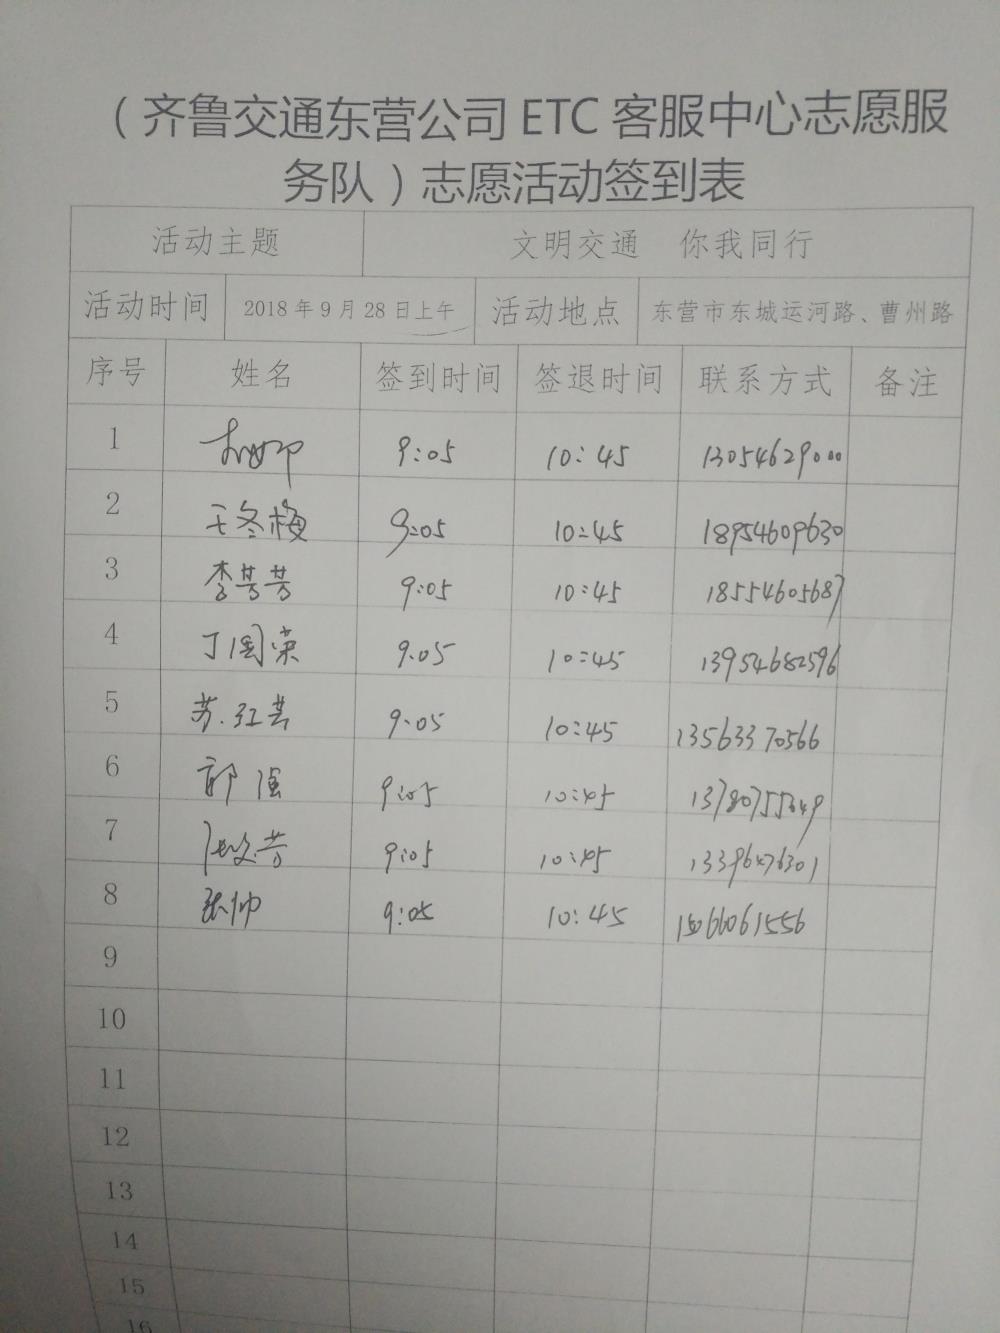 （齐鲁交通东营公司 ETC 客服中心志愿服
务队）志愿活动签到表
活动主题 文明交通 你我同行
活动时间 2018 年 9 月 28 日上午 活动地点 东营市东城运河路、曹州路
序号 姓名 签到时间 签退时间 联系方式 备注
1 9:05 10:45 13054629000
2 王冬梅 9:05 10:45 18954609630
3 李芳芳 9:05 10:45 18554605687
4 丁国荣 9.05 10:45 13954682596
5 苏红芸 9:05 10:45 13563370566
6 郭强 9:05 10:45
7 9:05 10:45 13396476301
8 张帅 9:05 10:45 15066061556
9
10
11
12
13
14
15
16